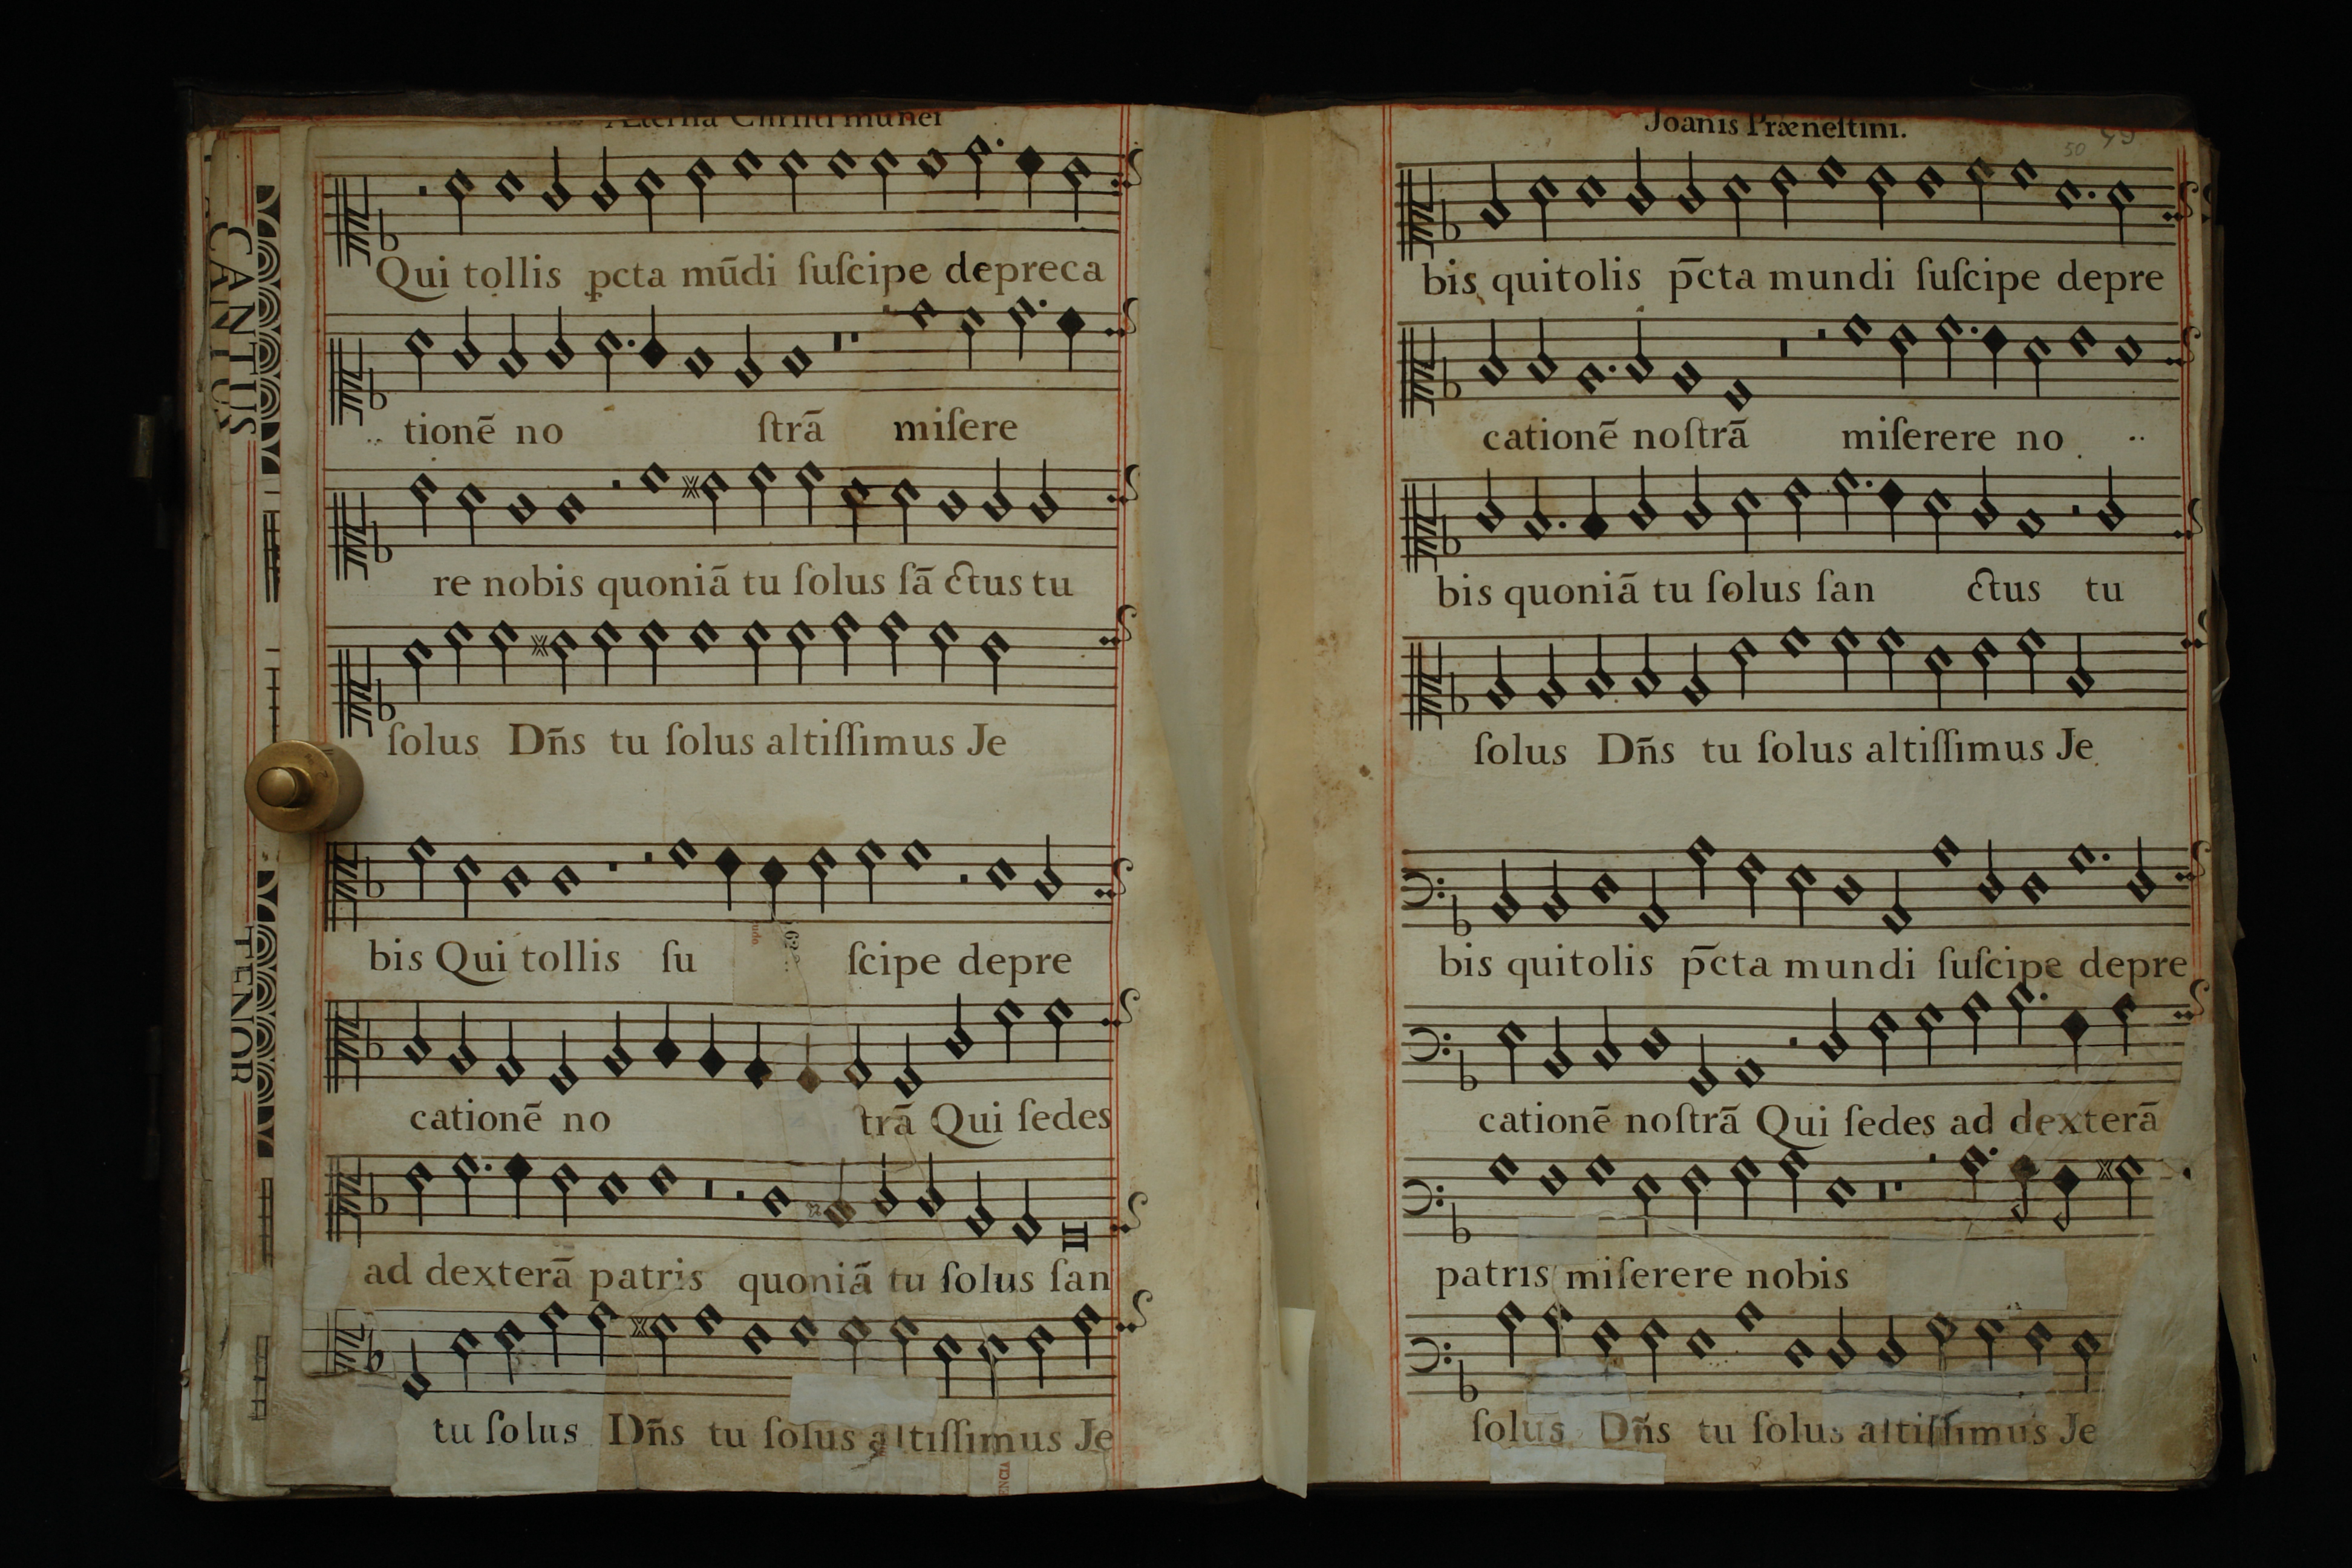 Æterna Christi munei
Qui tollis pcta mūdi ſuſcipe depreca
tionē no ſtrā miſere
re nobis quoniā tu ſolus ſā ctus tu
ſolus Dn̄s tu ſolus altiſſimus Je
bis Qui tollis ſu ſcipe depre
cationē no trā Qui ſedes
ad dexterā patris quoniā tu ſolus ſan
tu ſolus Dn̄s tu ſolus altiſſimus Je
CANTUS
CANTUS
TENOR
Joanis Præneſtini.
50 49
bis quitolis p̄cta mundi ſuſcipe depre
cationē noſtrā miſerere no
bis quoniā tu ſolus ſan ctus tu
ſolus Dn̄s tu ſolus altiſſimus Je
bis quitolis p̄cta mundi ſuſcipe depre
cationē noſtrā Qui ſedes ad dexterā
patris miſerere nobis
ſolus Dn̄s tu ſolus altiſſimus Je